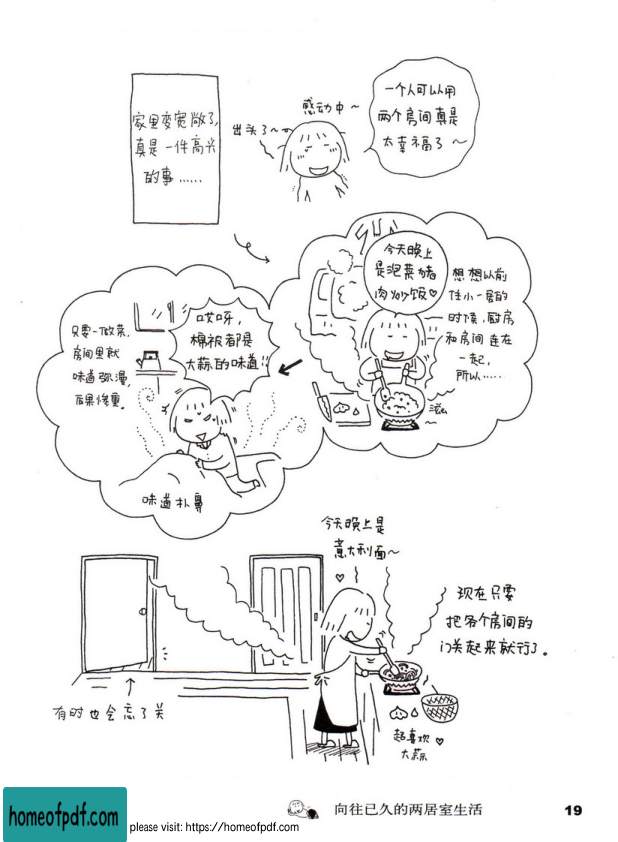 家里变宽敞了,
真是一件高兴
的事……
感动中~
出头了~
一个人可以用
两个房间真是
太幸福了~
今天晚上
是泡菜猪
肉炒饭♡
想想以前
住小一居的
时候,厨房
和房间连在
一起,
所以……
滋~
哎呀,
棉被都是
大蒜的味道!!
只要一做菜,
房间里就
味道弥漫,
后果惨重。
味道扑鼻
今天晚上是
意大利面~
♡
现在只要
把各个房间的
门关起来就行了。
有时也会忘了关
超喜欢♡
大蒜
向往已久的两居室生活
19
homeofpdf.com
please visit: https://homeofpdf.com